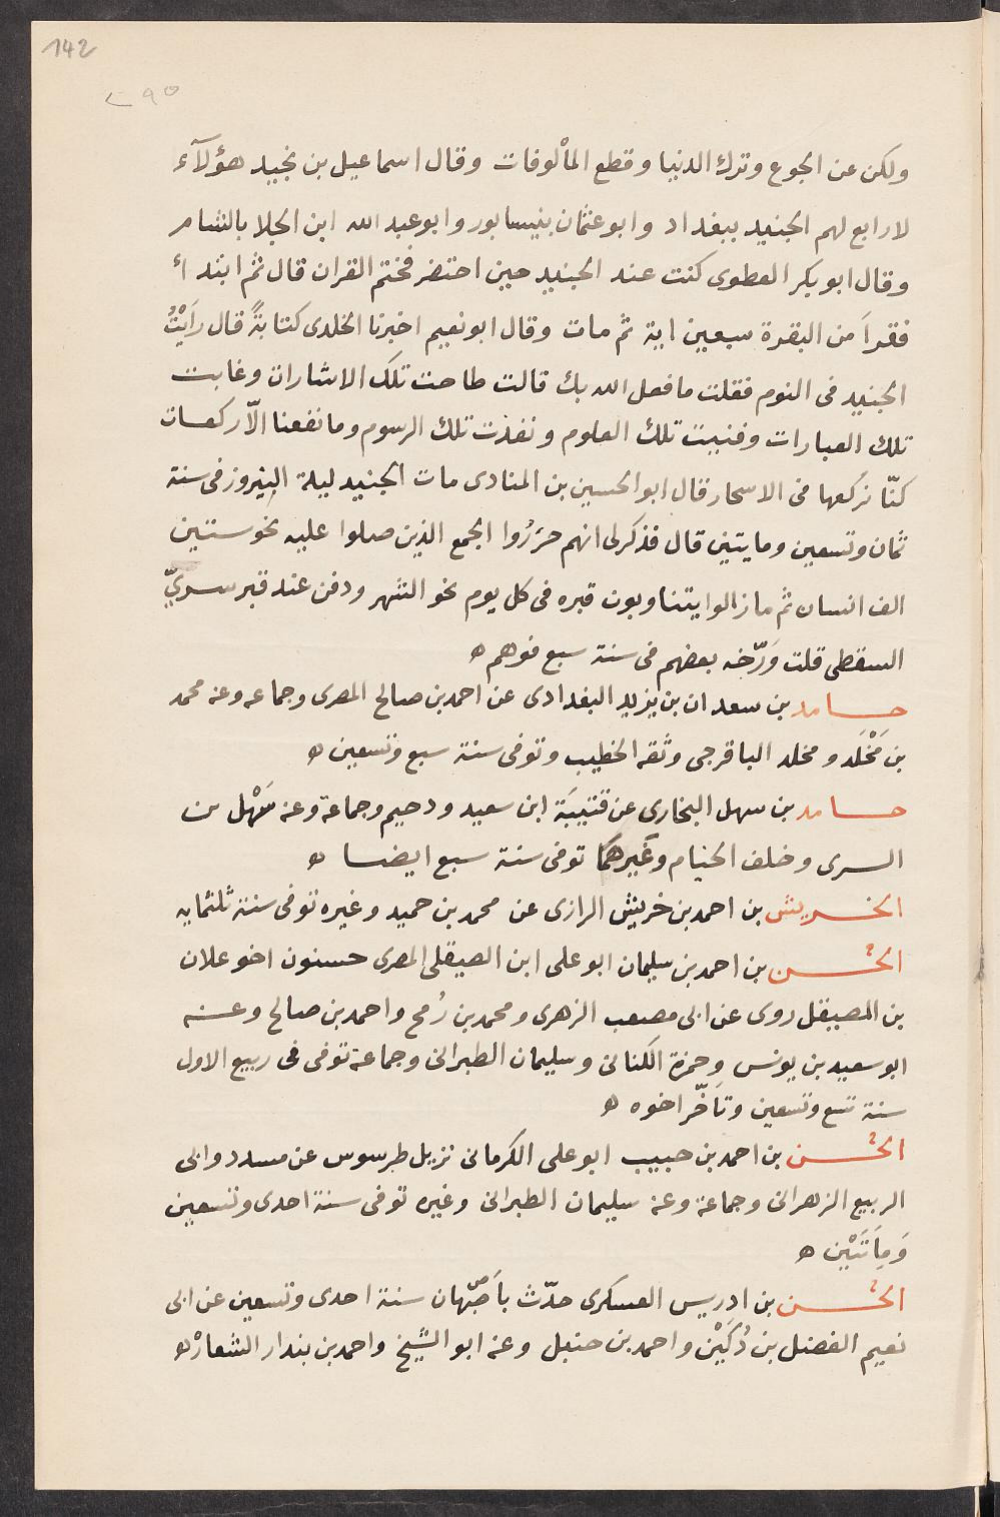 142
٢٩٥
ولكن عن الجوع وترك الدنيا وقطع المألوفات وقال اسماعيل بن نجيد هؤلآء
لا رابع لهم الجنيد ببغداد وابو عثمان بنيسابور وابو عبد الله ابن الجلا بالشام
وقال ابو بكر العطوى كنت عند الجنيد حين احتضر فختم القران قال ثم ابتدأ
فقرأَ من البقرة سبعين اية ثم مات وقال ابو نعيم اخبرنا الخلدى كتابةً قال رَاَيْتُ
الجنيد فى النوم فقلت ما فعل الله بك قالت طاحت تلك الاشارات وغابت
تلك العبارات وفنيت تلك العلوم ونفدت تلك الرسوم وما نفعنا الّا ركعات
كنّا نركعها فى الاسحار قال ابو الحسين بن المنادى مات الجنيد ليلة النيروز فى سنة
ثمان وتسعين ومايتين قال فذكر لى انهم حَزَرُوا الجمع الذين صلوا عليه نحو ستين
الف انسان ثم ما زالوا يتناوبون قبره فى كل يوم نحو الشهر ودفن عند قبر سرىّ
السقطى قلت وَرّخه بعضهم فى سنة سبع فوهم ه
حامد بن سعدان بن يزيد البغدادى عن احمد بن صالح المصرى وجماعه وعنه محمد
بن مَخْلَد ومخلد الباقرجى وثقه الخطيب وتوفى سنة سبع وتسعين ه
حامد بن سهل البخارى عن قتيبَة ابن سعيد ودحيم وجماعة وعنه سَهْل بن
السرى وخلف الخيام وغيرهما توفى سنة سبع ايضا ه
الخريش بن احمد بن خريش الرازى عن محمد بن حميد وغيره توفى سنة ثلثمايه
الحسن بن احمد بن سليمان ابو على ابن الصيقلى المصرى حسنون اخو علان
بن الصيقل روى عن ابى مصعب الزهرى ومحمد بن رُمح واحمد بن صالح وعنه
ابو سعيد بن يونس وحمزة الكنانى وسليمان الطبرانى وجماعة توفى فى ربيع الاول
سنة تسع وتسعين وتأخّر اخوه ه
الحسن بن احمد بن حبيب ابو على الكرمانى نزيل طرسوس عن مسدد وابى
الربيع الزهرانى وجماعة وعنه سليمان الطبرانى وغيره توفى سنة احدى وتسعين
وَمِاَتَيْن ه
الحسن بن ادريس العسكرى حدّث باَصبّهان سنة احدى وتسعين عن ابى
نعيم الفضل بن دُكَيْن واحمد بن حنبل وعنه ابو الشيخ واحمد بن بندار الشعار ه